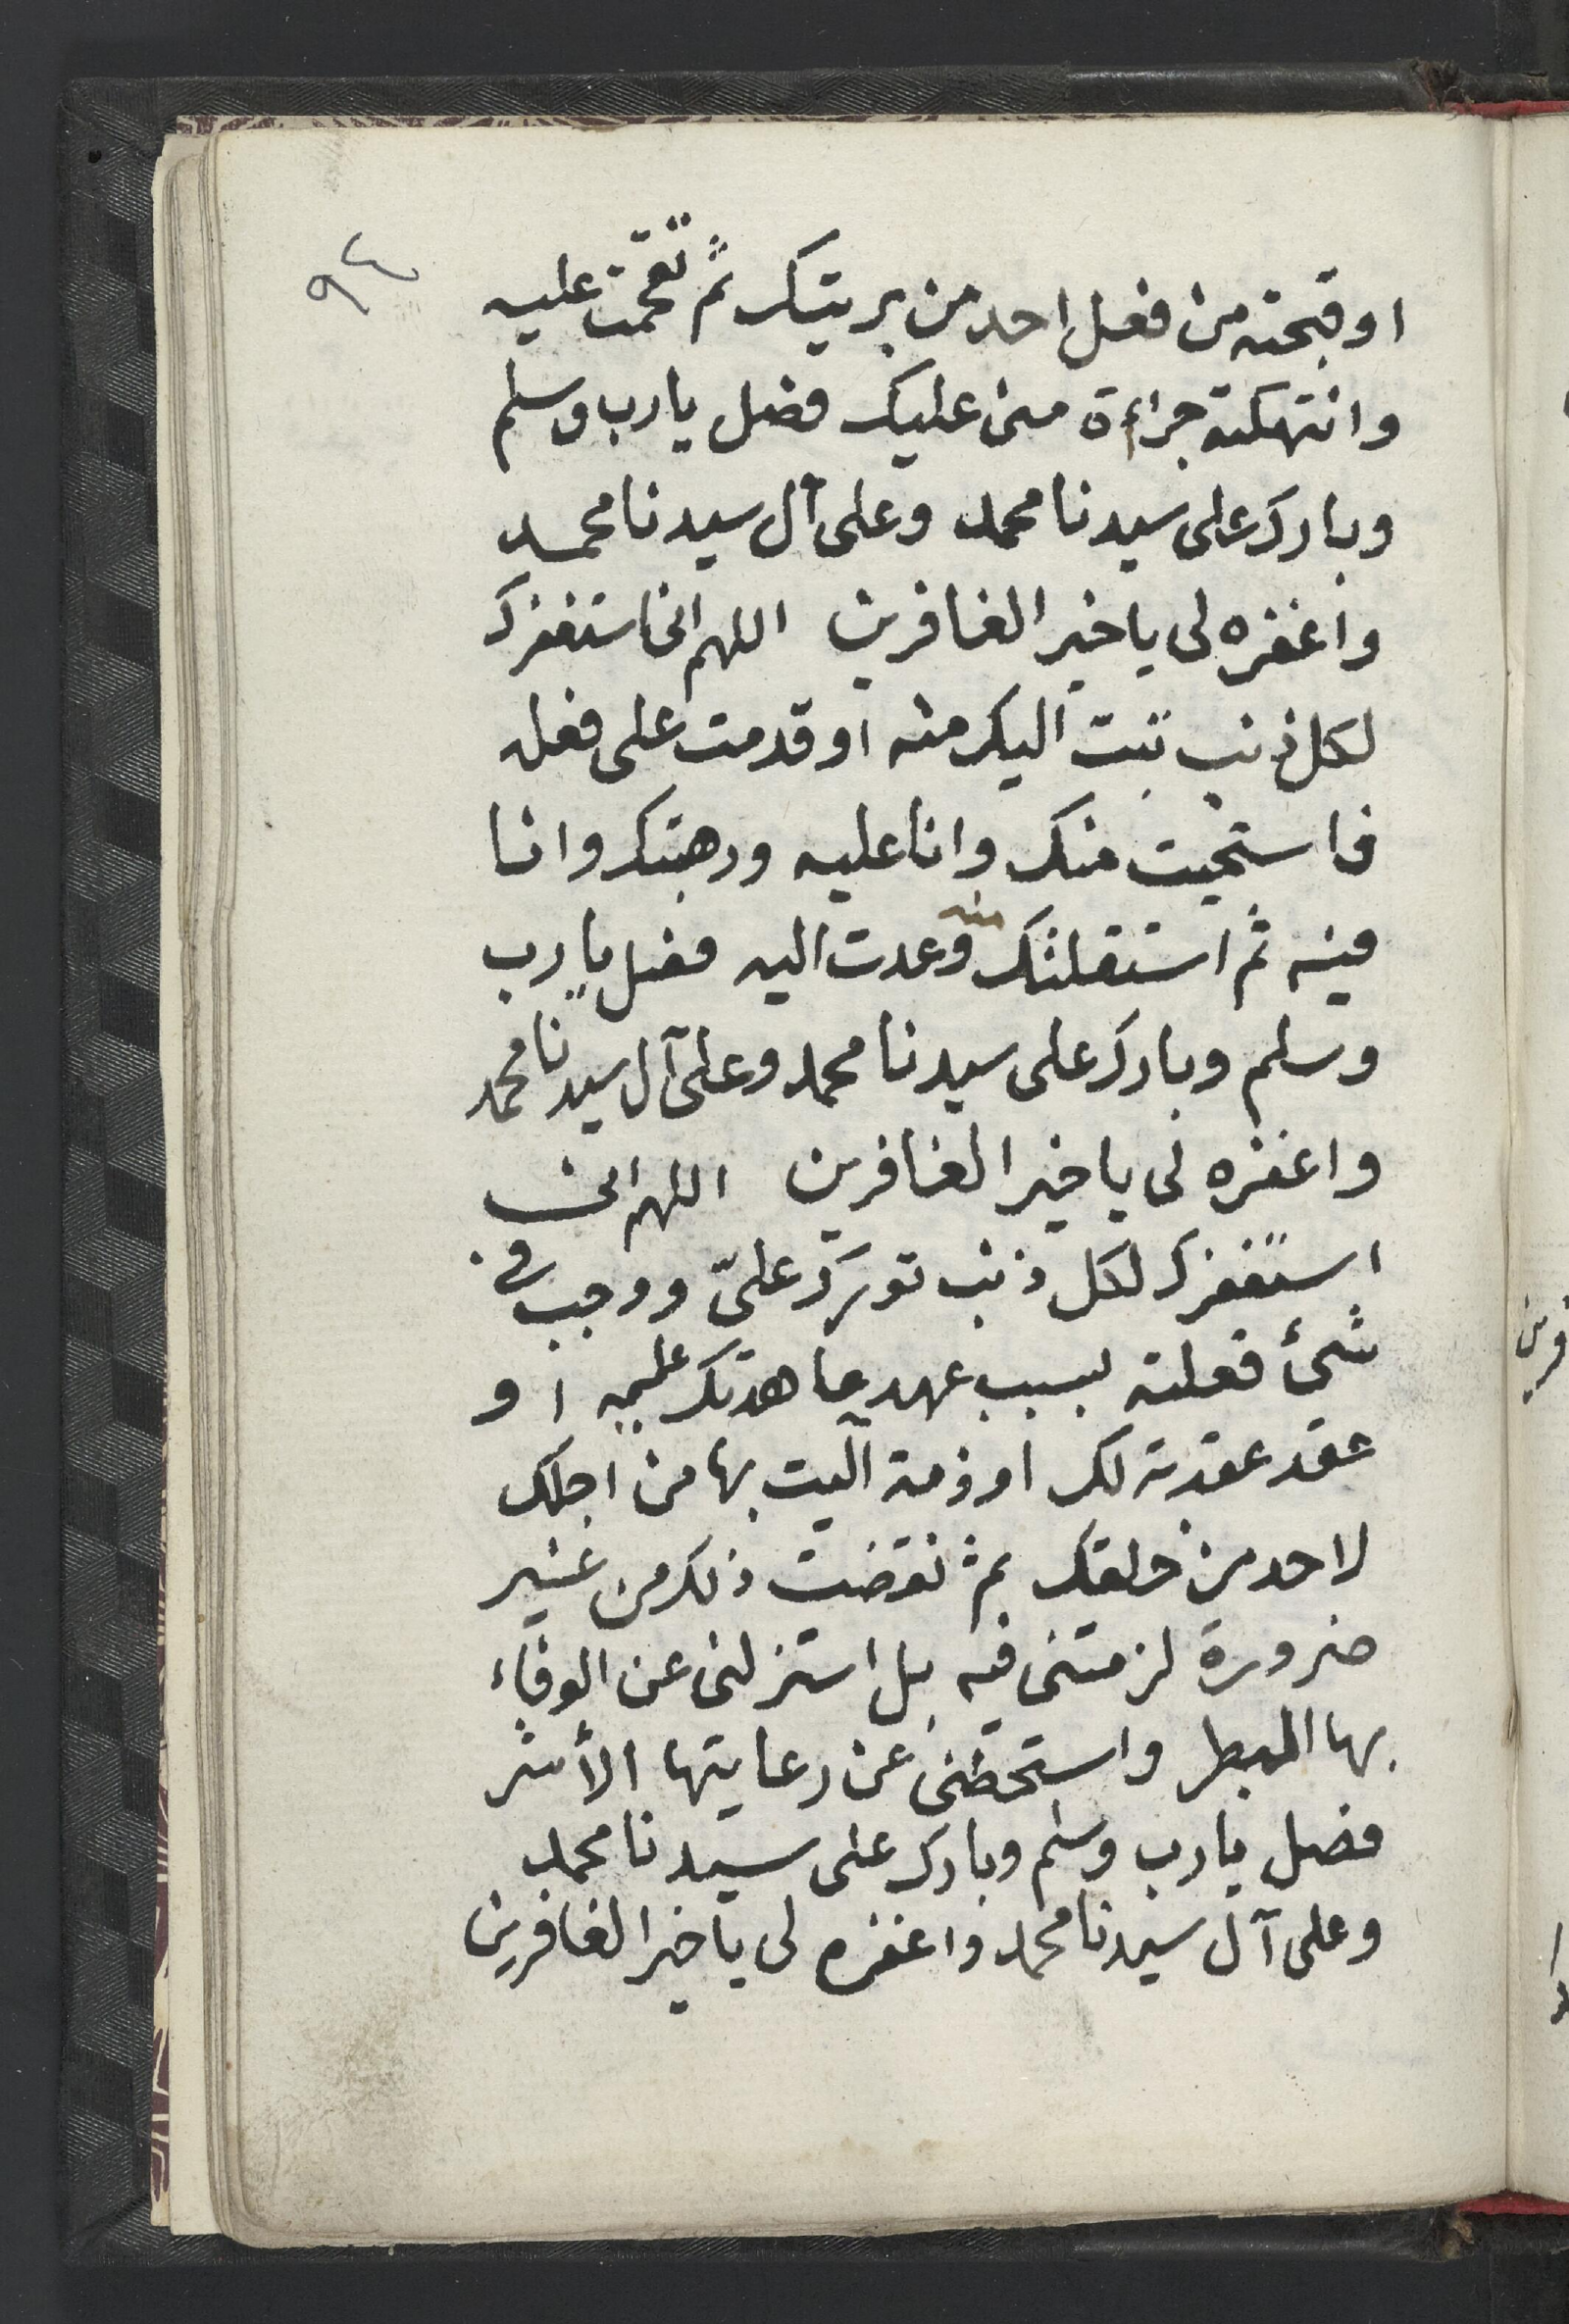 ٩٤
او قبحته من فعل احد من بريتك ثم تقحمت عليه
وانتهكته جراءة منى عليك فصل يارب وسلم
وبارك على سيدنا محمد وعلى آل سيدنا محمد
واغفره لى يا خير الغافرين اللهم انى استغفرك
لكل ذنب تبت اليك منه او قدمت على فعله
فاستحيت منك وانا عليه ورهبتك وانا
فيه ثم استقلتك منه وعدت اليه فصل يارب
وسلم وبارك على سيدنا محمد وعلى آل سيدنا محمد
واغفره لى يا خير الغافرين اللهم انى
استغفرك لكل ذنب تورك علىّ ووجب فى
شئ فعلته بسبب عهد عاهدتك عليه او
عقد عقدته لك او ذمة آليت بها من اجلك
لاحد من خلقك ثم نقضت ذلك من غير
ضرورة لزمتنى فيه بل استزلنى عن الوفاء
بها البطر واستحطنى عن رعايتها الأشر
فصل يارب وسلم وبارك على سيدنا محمد
وعلى آل سيدنا محمد واغفره لى يا خير الغافرين